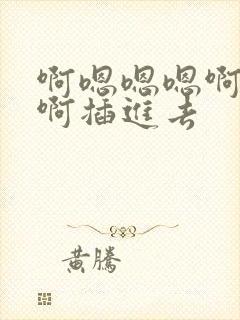 啊嗯嗯嗯啊
啊插進去
黄騰